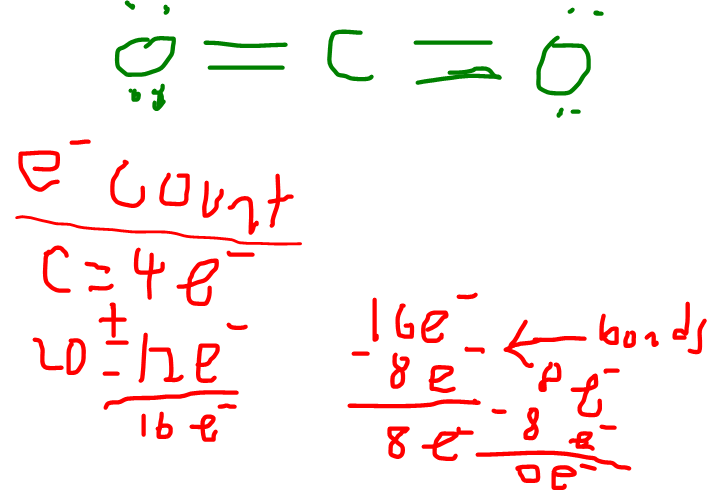 O = C = O
e⁻ count
C = 4e⁻
+
2O = 12e⁻
16e⁻
16e⁻
- 8e⁻ ← bonds
8e⁻
8e⁻
- 8e⁻
0e⁻